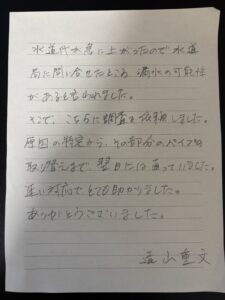 水道代が急に上がったので水道
局に問い合せたところ 漏水の可能性
があると言われました。
そこで、こちらに調査を依頼しました。
原因の特定から、その部分のパイプの
取り替えまで、翌日には直っていました。
速い対応でとても助かりました。
ありがとうございました。
遠山重文